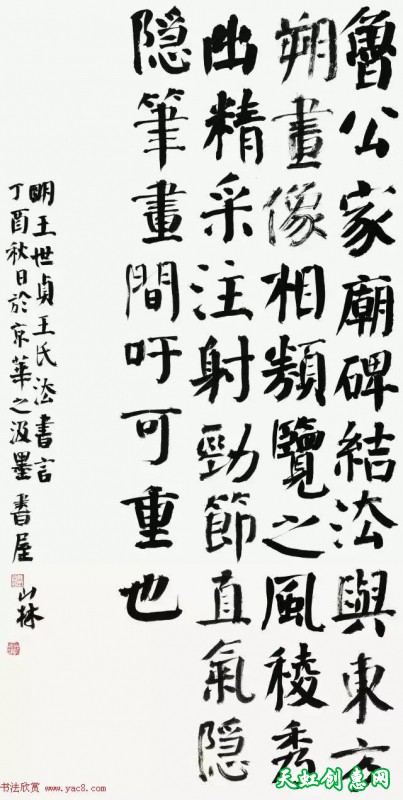 魯公家廟碑結法與東方
朔畫像相類覽之風稜秀
出精采注射勁節直氣隱
隐筆畫間吁可重也
明王世貞王氏法書言
丁酉秋日於京華之汲墨書屋
山林
书法欣赏 www.yac8.com
天虹创惠网